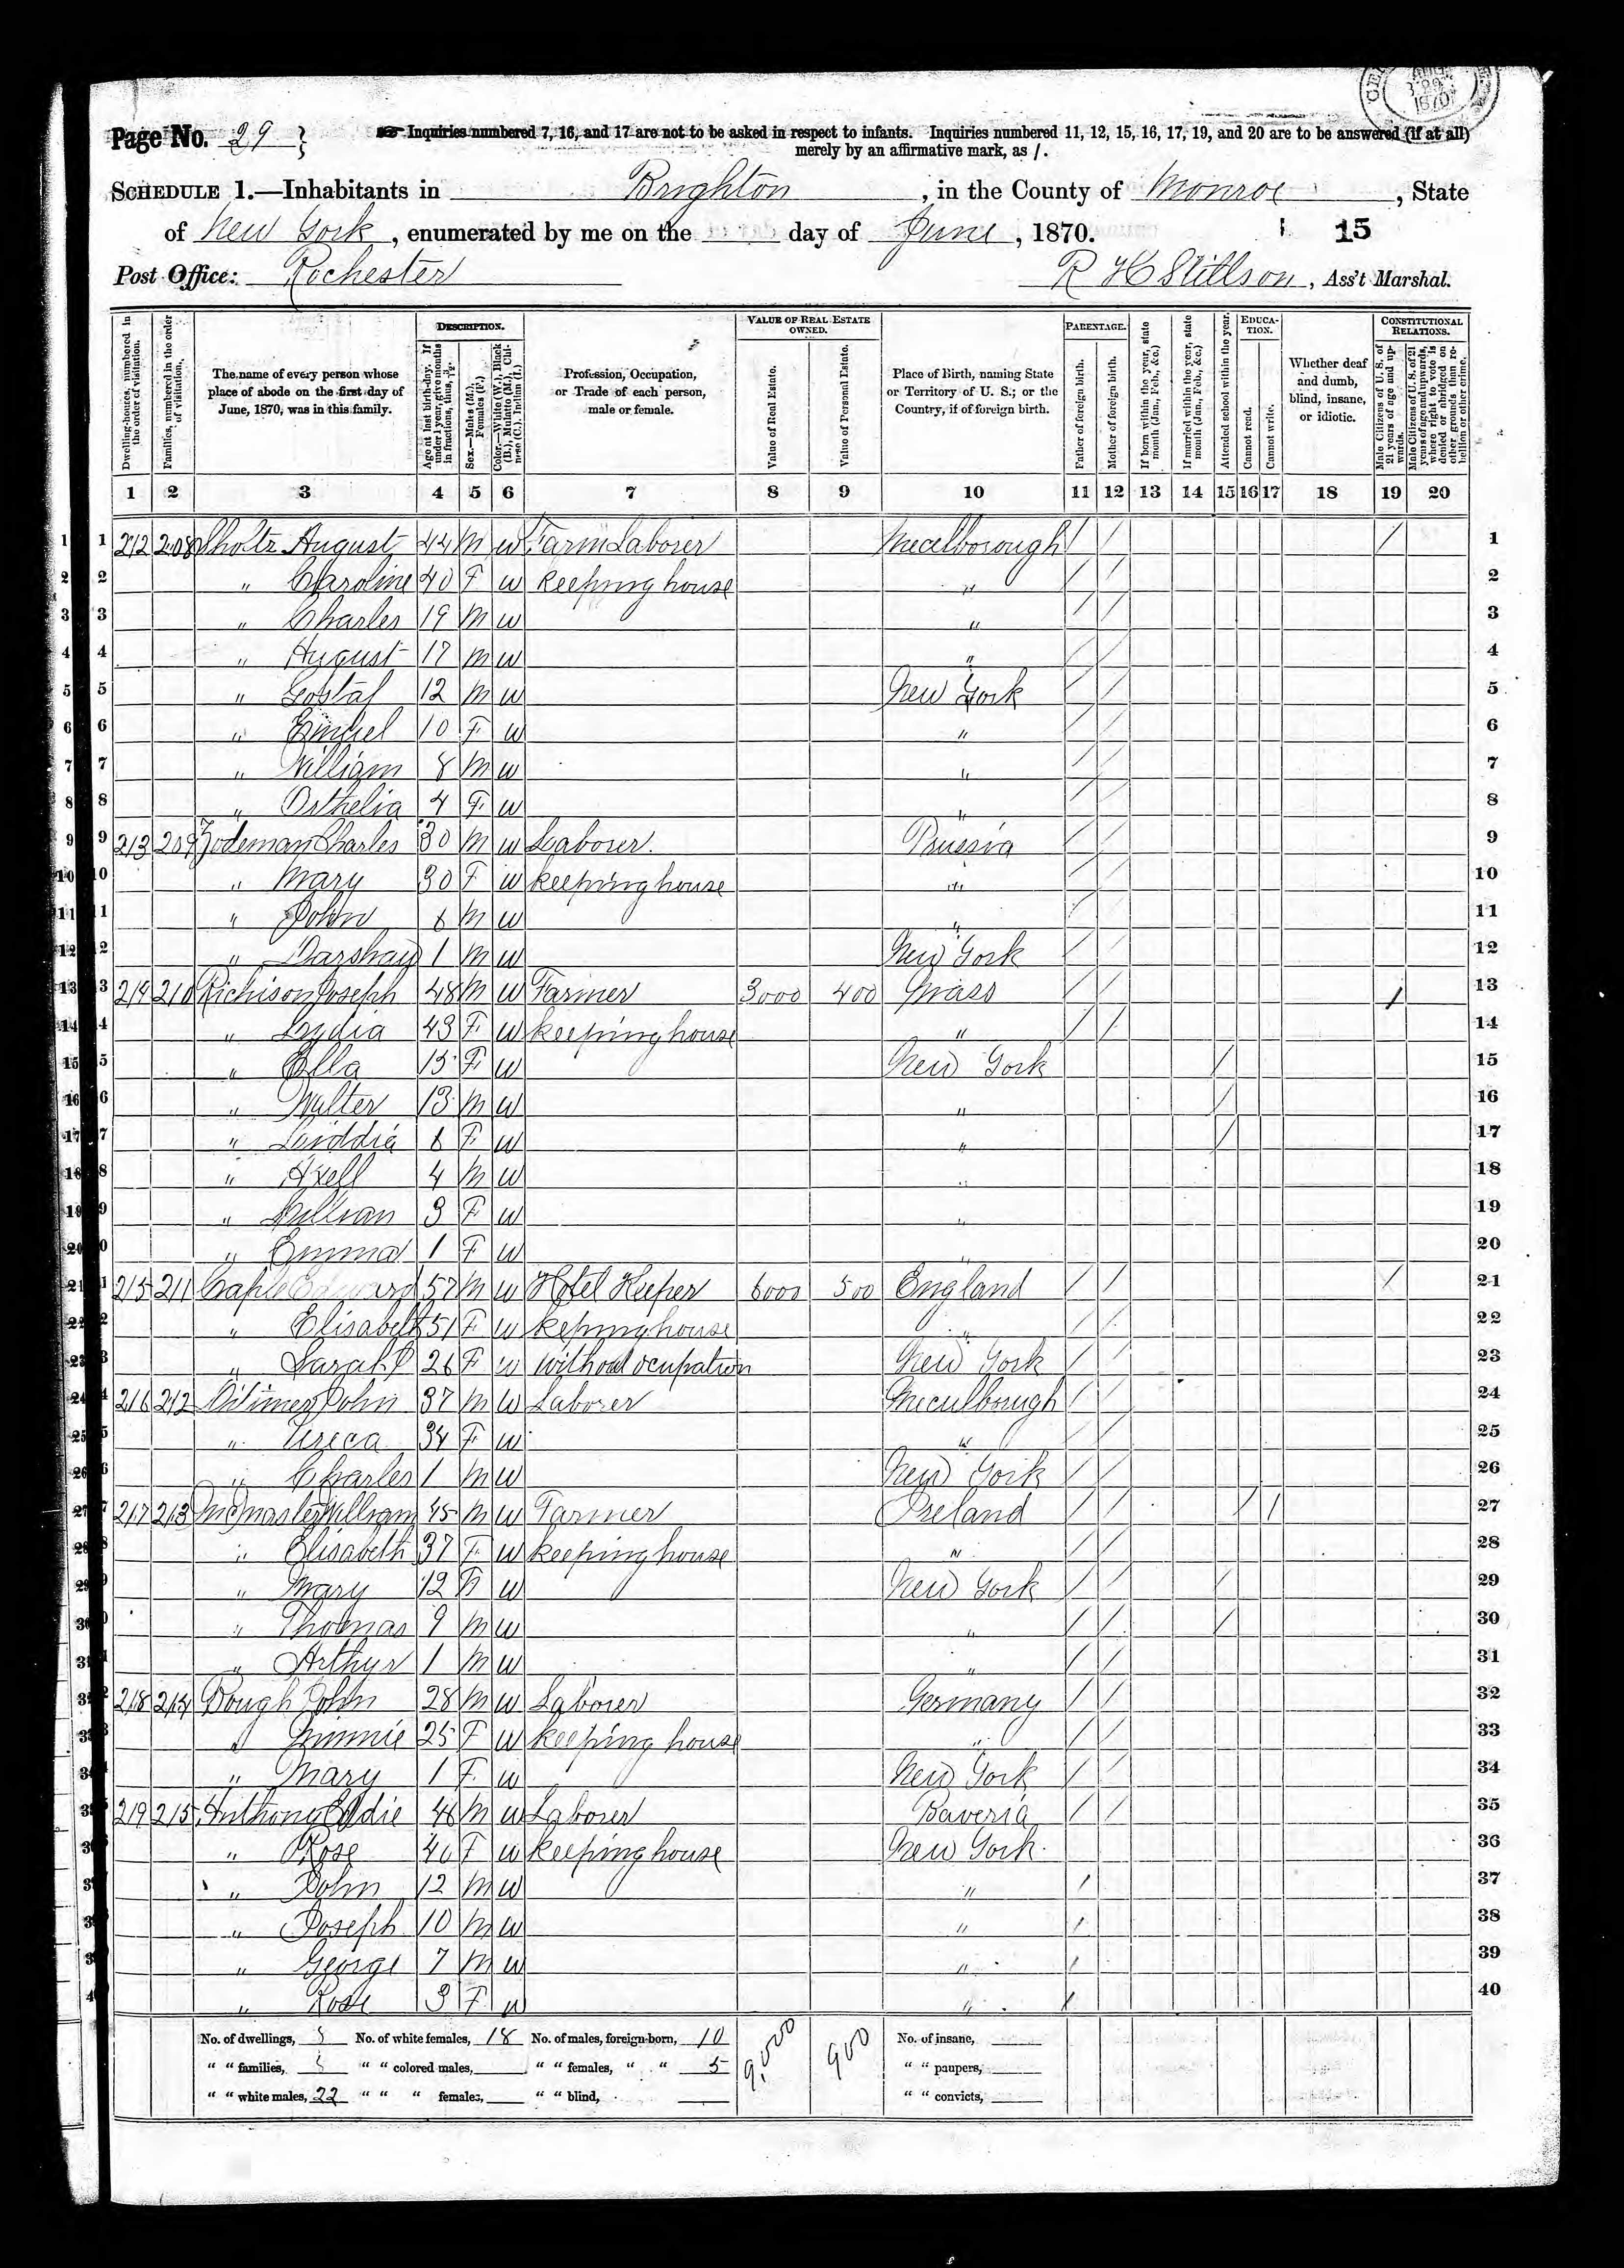 Page No. 29
Inquiries numbered 7, 16, and 17 are not to be asked in respect to infants. Inquiries numbered 11, 12, 15, 16, 17, 19, and 20 are to be answered (if at all)
merely by an affirmative mark, as /.
SCHEDULE 1.—Inhabitants in Brighton, in the County of Monroe, State
of New York, enumerated by me on the day of June, 1870. 15
Post Office: Rochester R H Stillson, Ass't Marshal.
Dwelling-houses, numbered in the order of visitation.
Families, numbered in the order of visitation.
The name of every person whose place of abode on the first day of June, 1870, was in this family.
DESCRIPTION.
Age at last birth-day. If under 1 year, give months in fractions, thus, 3/12.
Sex.—Males (M.), Females (F.)
Color.—White (W.), Black (B.), Mulatto (M.), Chinese (C.), Indian (I.)
Profession, Occupation, or Trade of each person, male or female.
VALUE OF REAL ESTATE OWNED.
Value of Real Estate.
Value of Personal Estate.
Place of Birth, naming State or Territory of U. S.; or the Country, if of foreign birth.
PARENTAGE.
Father of foreign birth.
Mother of foreign birth.
If born within the year, state month (Jan., Feb., &c.)
If married within the year, state month (Jan., Feb., &c.)
Attended school within the year.
EDUCATION.
Cannot read.
Cannot write.
Whether deaf and dumb, blind, insane, or idiotic.
CONSTITUTIONAL RELATIONS.
Male Citizens of U. S. of 21 years of age and upwards.
Male Citizens of U. S. of 21 years of age and upwards, where right to vote is denied or abridged on other grounds than rebellion or other crime.
1 2 3 4 5 6 7 8 9 10 11 12 13 14 15 16 17 18 19 20
1 212 208 Sholtz August 44 M W Farm Laborer Mecelborough / / / 1
2 " Caroline 40 F W Keeping house " / / 2
3 " Charles 19 M W " / / 3
4 " August 17 M W " / / 4
5 " Gostaf 12 M W New York / / 5
6 " 10 F W " / / 6
7 " William 8 M W " / / 7
8 " Osthelia 4 F W " / / 8
9 213 209 Charles 30 M W Laborer Prussia / / 9
10 " Mary 30 F W Keeping house " / / 10
11 " John 6 M W " / / 11
12 " 1 M W New York / / 12
13 214 210 Richison Joseph 48 M W Farmer 3000 400 Mass / / / 13
14 " Lydia 43 F W Keeping house " / / 14
15 " Ella 15 F W New York / 15
16 " Walter 13 M W " / 16
17 " 6 F W " / 17
18 " Axell 4 M W " 18
19 " Lillian 3 F W " 19
20 " Emma 1 F W " 20
21 215 211 Caple Edward 57 M W Hotel Keeper 6000 500 England / / / 21
22 " Elisabeth 51 F W Keping house " / / 22
23 " Sarah 26 F W without ocupation New York / / 23
24 216 212 John 37 M W Laborer Meculbough / / 24
25 " Ureca 34 F W " / / 25
26 " Charles 1 M W New York / / 26
27 217 213 McMaster William 45 M W Farmer Ireland / / / / 27
28 " Elisabeth 37 F W Keeping house " / / 28
29 " Mary 12 F W New York / / / 29
30 " Thomas 9 M W " / / / 30
31 " Arthur 1 M W " / / 31
32 218 214 Bough John 28 M W Laborer Germany / / 32
33 " Minnie 25 F W Keeping house " / / 33
34 " Mary 1 F W New York / / 34
35 219 215 Anthony Eddie 46 M W Laborer Baveria / / 35
36 " Rose 40 F W Keeping house New York 36
37 " John 12 M W " / 37
38 " Joseph 10 M W " / 38
39 " George 7 M W " / 39
40 " Rose 3 F W " / 40
No. of dwellings, 8 No. of white females, 18 No. of males, foreign-born, 10 9,000 900 No. of insane,
" " families, 8 " " colored males, " " females, " " 5 " " paupers,
" " white males, 22 " " " females, " " blind, " " convicts,